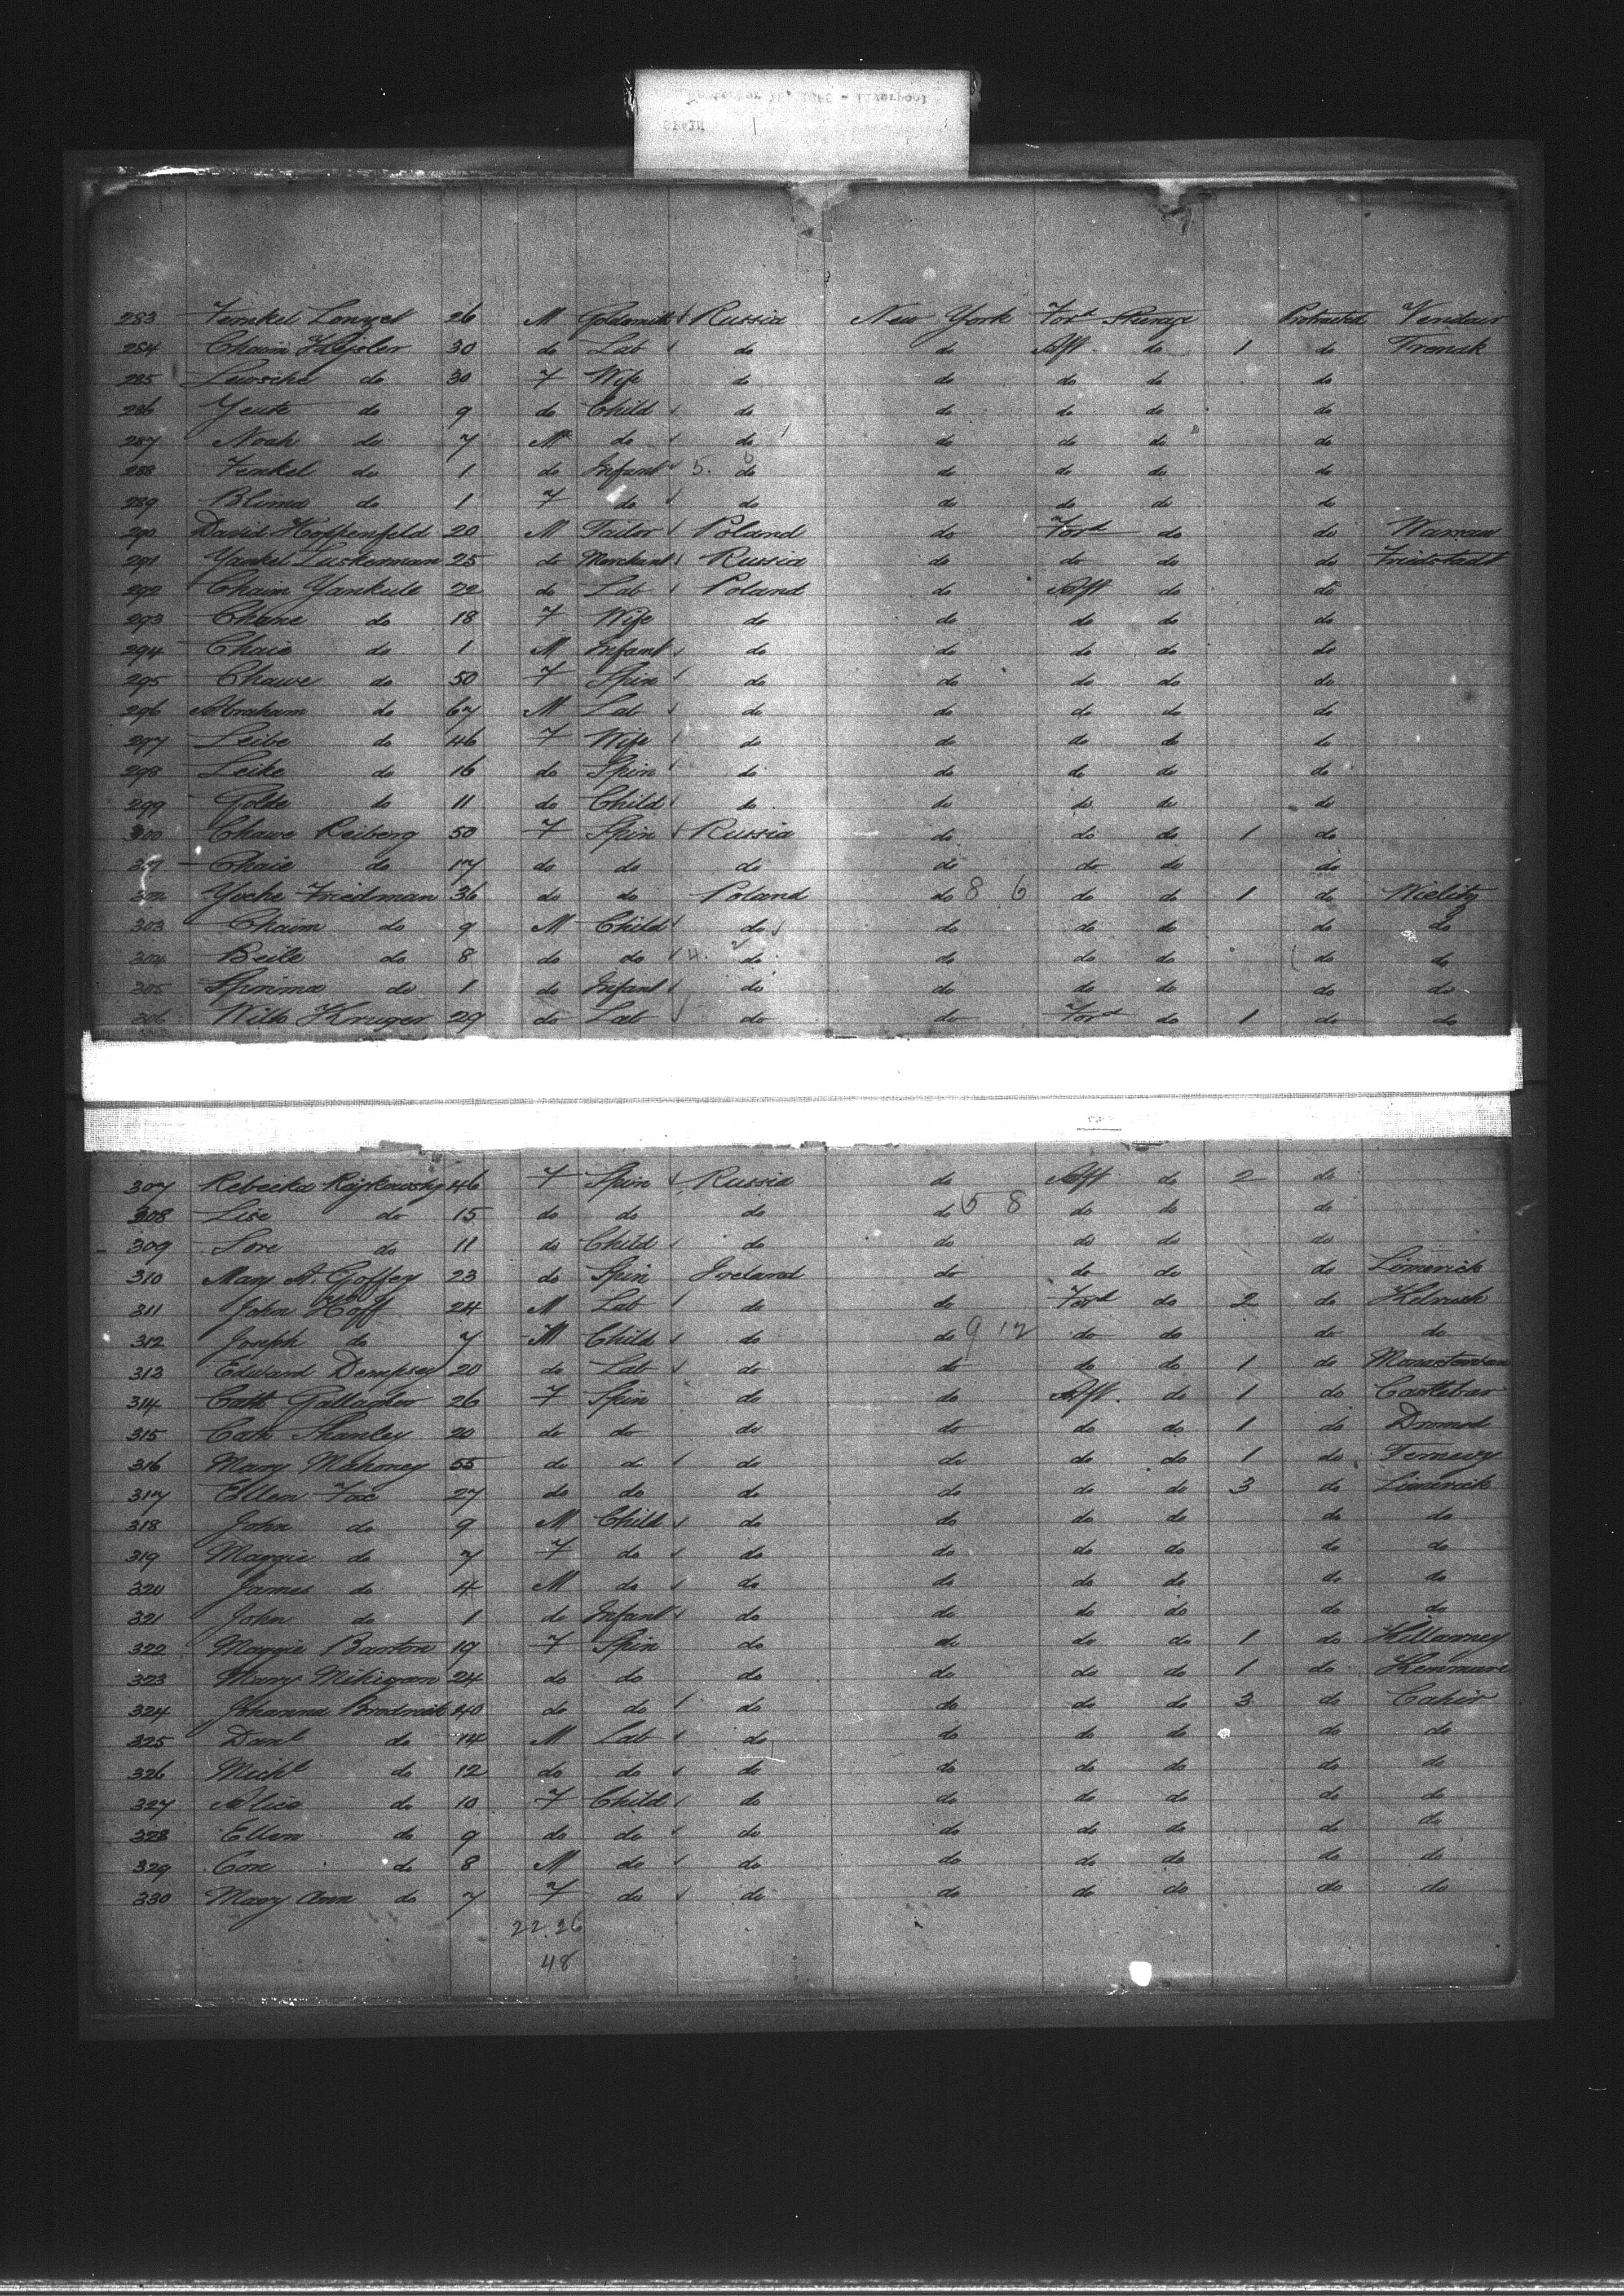 283 Lenzel 26 M Goldsmith Russia New York Ford Steerage Protracted
284 Chaim Kessler 30 do Lab do do Aft do 1 do
285 do 30 F Wife do do do do do
286 do 9 do Child do do do do do
287 Noah do 7 M do do do do do do
288 Yenkel do 1 do Infant 5. do do do do do
289 Blima do 1 F do do do do do do
290 David Hoppenfeld 20 M Tailor Poland do Ford do do Warsaw
291 Yankel Luskerman 25 do Merchant Russia do do do do Friedstadt
292 Chaim Yankule 22 do Lab Poland do Aft do do
293 Chane do 18 F Wife do do do do do
294 Chaie do 1 M Infant do do do do do
295 Chawe do 50 F Spin do do do do do
296 Abraham do 67 M Lab do do do do do
297 Leibe do 46 F Wife do do do do do
298 Leike do 16 do Spin do do do do do
299 Golde do 11 do Child do do do do do
300 Chawe Reiberg 50 F Spin Russia do do do 1 do
301 Chaie do 17 do do do do do do do
302 Yoche Friedman 36 do do Poland do 8 6 do do 1 do Wielitz
303 Chaim do 9 M Child do do do do do do
304 Beile do 8 do do 4. do do do do do do
305 do 1 do Infant do do do do do do
306 Kruger 29 do Lab do do Ford do 1 do do
307 Rebecka Rajkowsky 46 F Spin Russia do Aft do 2 do
308 Lise do 15 do do do do 5 8 do do do
309 Sore do 11 do Child do do do do do
310 Mary A. Goffey 23 do Spin Ireland do do do do Limerick
311 John Hoff 24 M Lab do do Ford do 2 do Kilrush
312 Joseph do 7 M Child do do 9 12 do do do do
313 Edward Dempsey 20 do Lab do do do do 1 do
314 Cath Gallagher 26 F Spin do do Aft. do 1 do Castlebar
315 Cath Shanley 20 do do do do do do 1 do Dromod
316 Mary Mahoney 55 do do do do do do 1 do
317 Ellen Fox 27 do do do do do do 3 do Limerick
318 John do 9 M Child do do do do do do
319 Maggie do 7 F do do do do do do do
320 James do 4 M do do do do do do do
321 John do 1 do Infant do do do do do do
322 Maggie Barton 19 F Spin do do do do 1 do Killarney
323 Mary Mihigan 24 do do do do do do 1 do Kenmare
324 Johanna Brodrick 40 do do do do do do 3 do Cahir
325 Danl do 14 M Lab do do do do do do
326 Michl do 12 do do do do do do do do
327 Alice do 10 F Child do do do do do do
328 Ellen do 9 do do do do do do do do
329 Con do 8 M do do do do do do do
330 Mary Ann do 7 F do do do do do do do
22.26
48